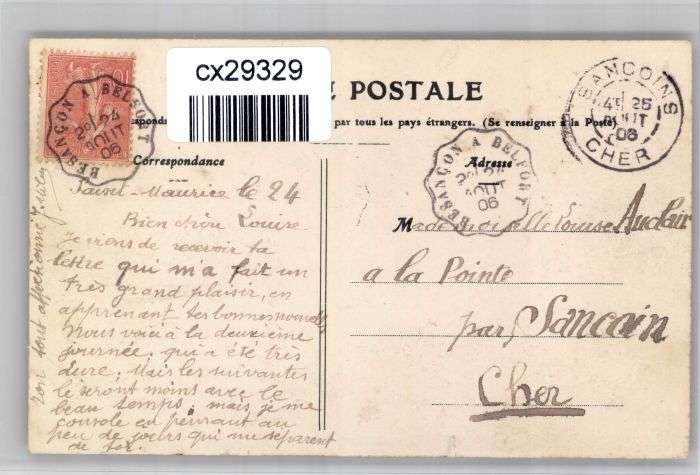 cx29329
E POSTALE
par tous les pays étrangers. (Se renseigner à la Poste)
Correspondance
Adresse
BESANÇON A BELFORT
2º 24
AOUT
06
BESANÇON A BELFORT
2º 24
AOUT
06
SANCOINS
4E 25
AOUT
06
CHER
Saint-Maurice le 24
Bien chère Louise
je viens de recevoir ta
lettre qui m'a fait un
très grand plaisir, en
apprenant tes bonnes nouvelles
Nous voici à la deuxième
journée. qui a été très
dure. Mais les suivantes
le seront moins avec le
beau temps. mais je me
console en pensant au
peu de jours qui me séparent
de toi.
ton tout affectionné
Mademoiselle Louise Auclair
a la Pointe
par Sancoin
Cher